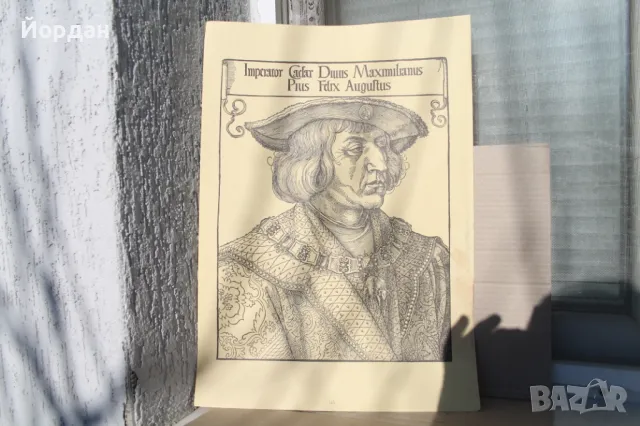 Йордан
Imperator Caesar Diuus Maximilianus
Pius Felix Augustus
BAZAR